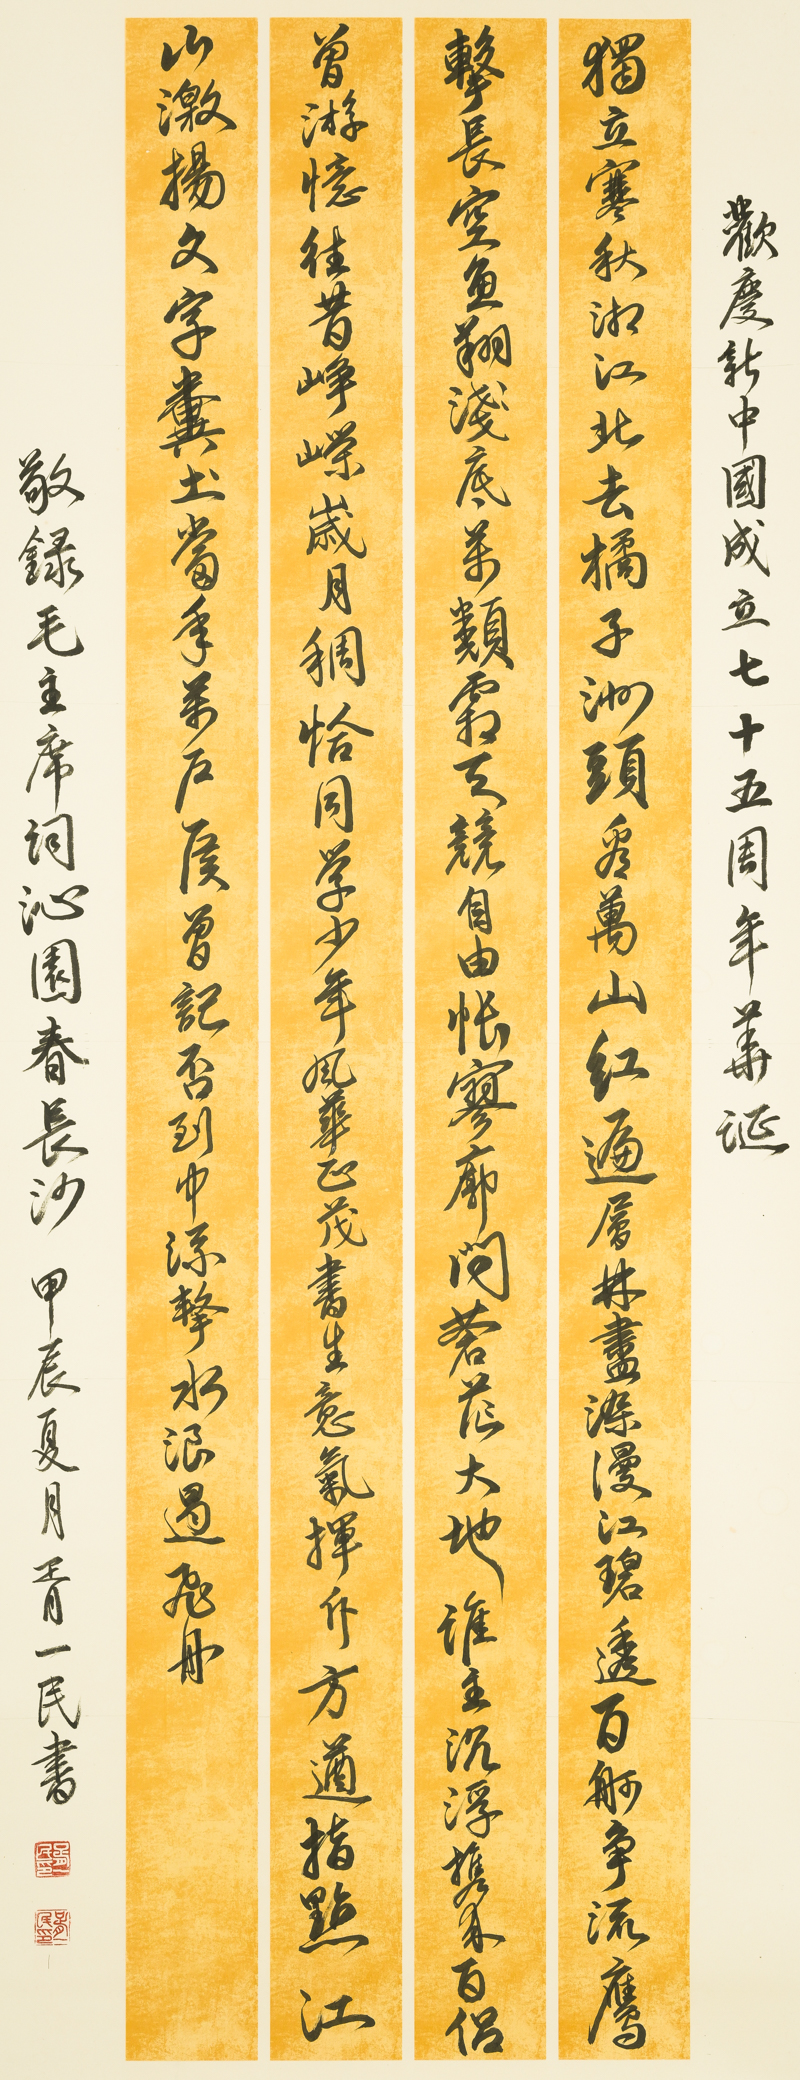 歡慶新中國成立七十五周年華誕
獨立寒秋湘江北去橘子洲頭看萬山紅遍層林盡染漫江碧透百舸争流鷹
擊長空魚翔淺底萬類霜天競自由悵寥廓問蒼茫大地誰主沉浮攜來百侣
曾游憶往昔崢嶸歲月稠恰同学少年風華正茂書生意氣揮斥方遒指點江
山激揚文字糞土當年萬户侯曾記否到中流擊水浪遏飛舟
敬録毛主席詞沁園春長沙 甲辰夏月胥一民書